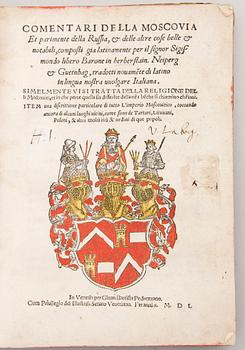 COMENTARI DELLA MOSCOVIA
Et parimente della Russia, & delle altre cose belle &
notabili, composti gia latinamente per il signor Sigis
mondo libero Barone in herberstain, Neiperg
& Guetnhag, tradotti nouamẽte di latino
in lingua nostra uuolgare Italiana.
SIMELMENTE VI SI TRATTA DELLA RELIGIONE DEL
li Moscouiti, et in che parte quella sia differẽte dalla nr̃a bẽche si chiamino chr̃iani.
ITEM una discrittione particulare di tutto L'imperio Moscouitico, toccando
ancora di alcuni luoghi uicini, come sono de Tartari, Lituuani,
Poloni, & altri molti riti & ordini di que popoli.
H. I.
In Venetia per Gioan Battista Pedrezzano.
Cum Priuilegio del Illustriss. Senato Venetiano. Per anni. x. M D L